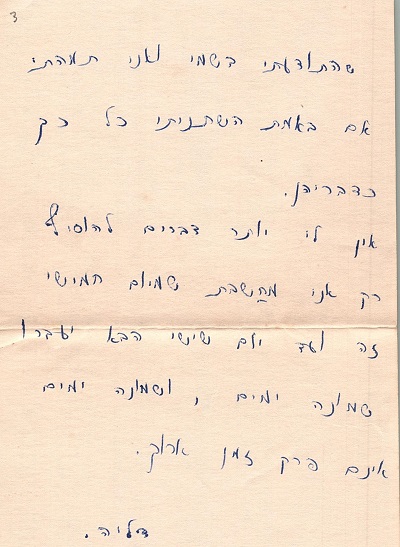 3
שהתודעתי בשמי ואני תמהתי
אם באמת השתניתי כל כך
כדבריהן.
אין לי יותר דברים להוסיף
רק אני מחשבת שמיום חמישי
זה ועד יום שישי הבא יעברו
שמונה ימים , ושמונה ימים
אינם פרק זמן ארוך.
דליה.